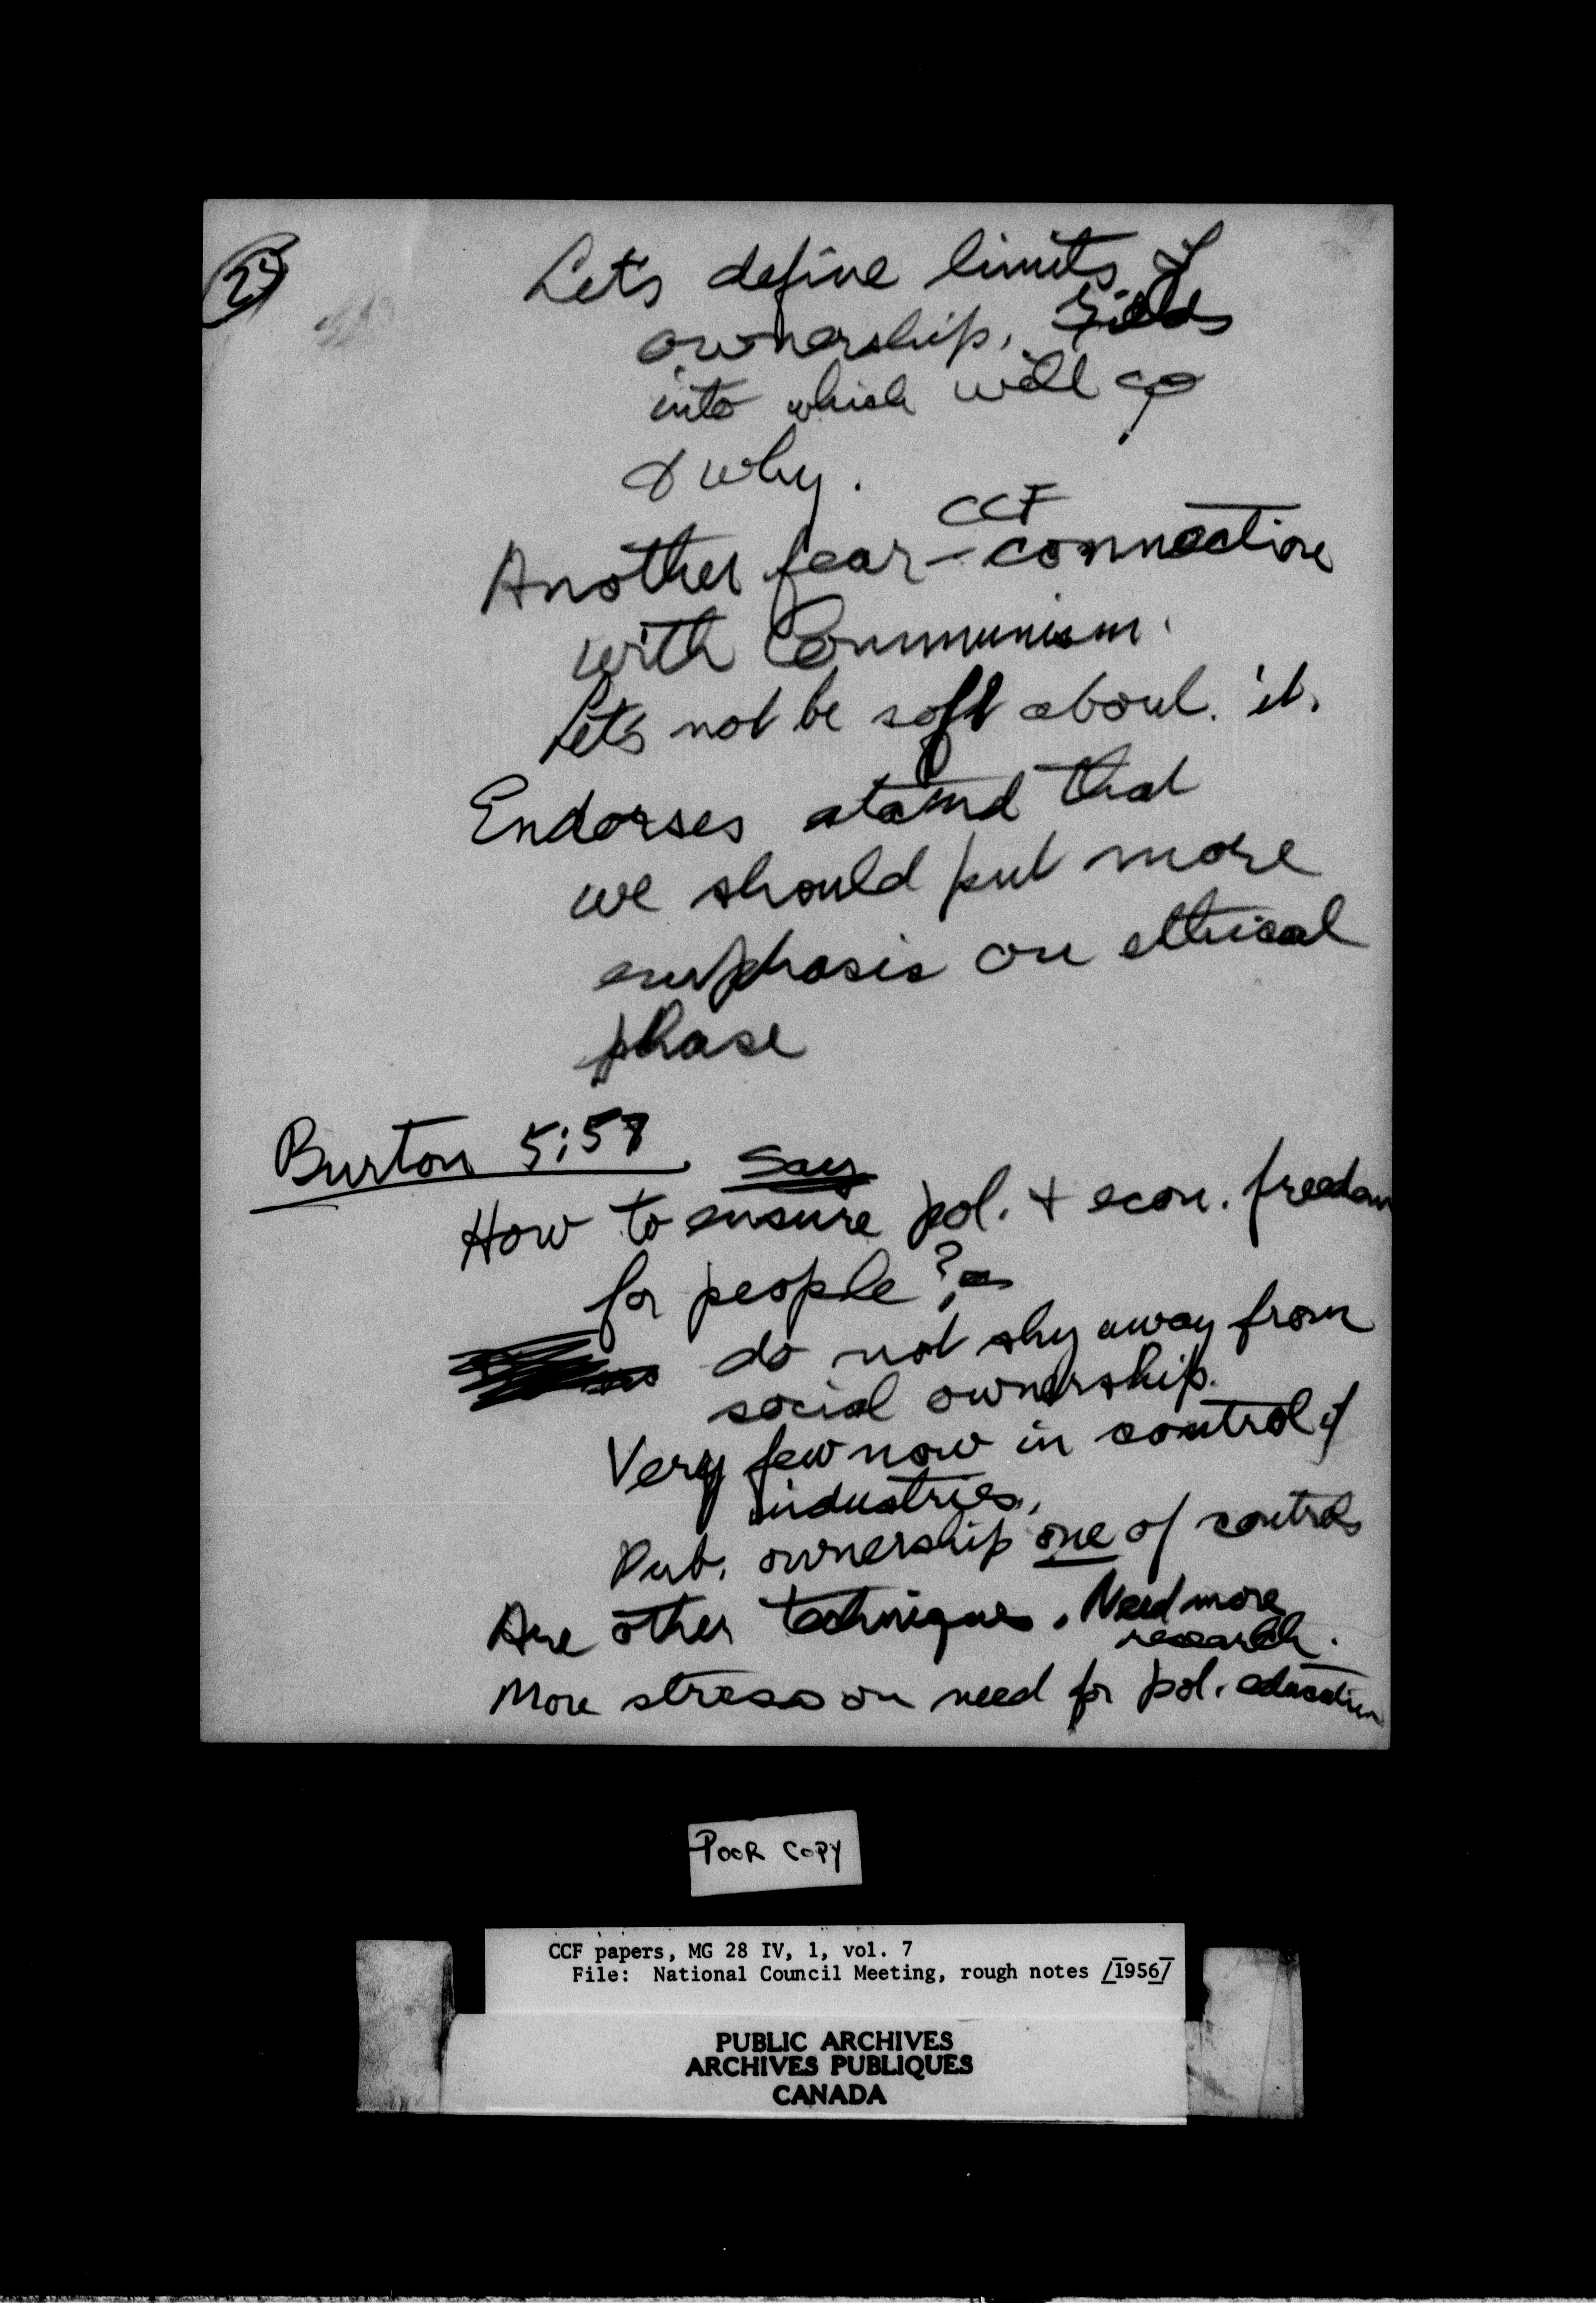 Let's define limits of
ownership, fields
into which will go
& why.
CCF
Another fear - connection
with Communism.
Let's not be soft about it.
Endorses stand that
we should put more
emphasis on ethical
phase
Burton 5:58
Say
How to ensure pol. + econ. freedom
for people?
do not shy away from
social ownership.
Very few now in control of
industries.
Pub. ownership one of controls
Are other techniques. Need more
research.
More stress on need for pol. education
POOR COPY
CCF papers, MG 28 IV, 1, vol. 7
File: National Council Meeting, rough notes /1956/
PUBLIC ARCHIVES
ARCHIVES PUBLIQUES
CANADA